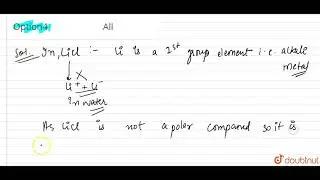 Option 4
All
Sol. In, LiCl :- Li is a 1st group element i.e. alkale
metal
Li+ + Cl-
In water
As LiCl is not a polar compound so it is
doubtnut